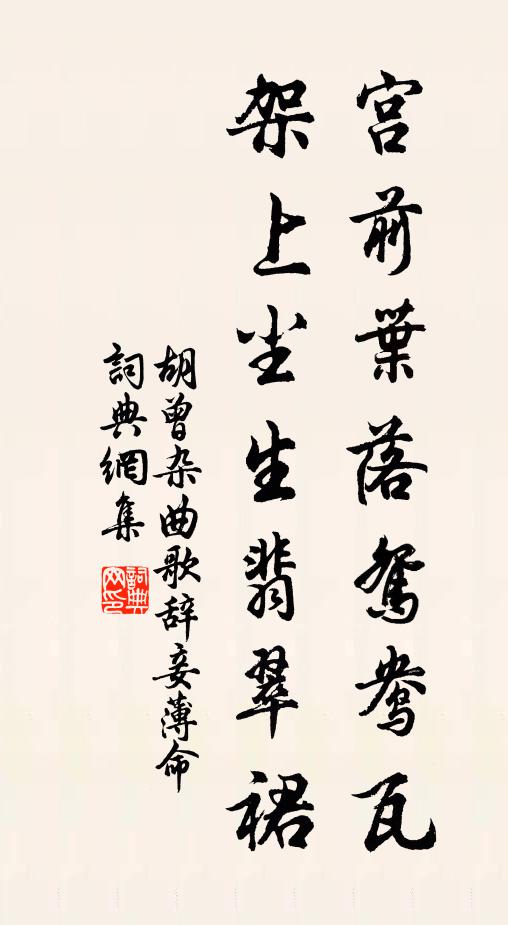 宫前葉落鴛鴦瓦
架上尘生翡翠裙
胡曾杂曲歌辞妾薄命
詞典網集
詞典网印